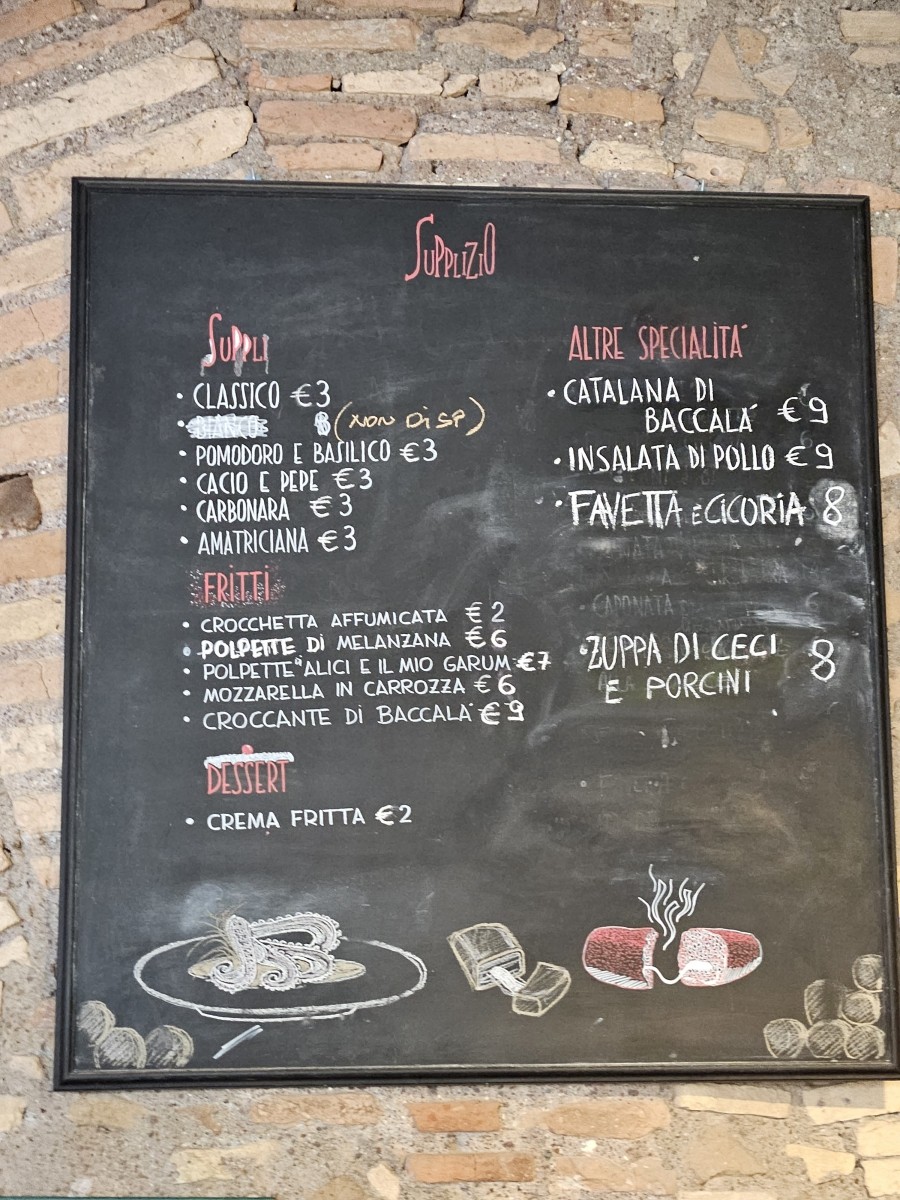 SUPPLIZIO
SUPPLI
• CLASSICO €3
• BIANCO (NON DISP)
• POMODORO E BASILICO €3
• CACIO E PEPE €3
• CARBONARA €3
• AMATRICIANA €3
FRITTI
• CROCCHETTA AFFUMICATA €2
• POLPETTE DI MELANZANA €6
• POLPETTE "ALICI E IL MIO GARUM €7
• MOZZARELLA IN CARROZZA €6
• CROCCANTE DI BACCALA' €9
DESSERT
• CREMA FRITTA €2
ALTRE SPECIALITA'
• CATALANA DI
BACCALA' €9
• INSALATA DI POLLO €9
• FAVETTA E CICORIA 8
• CAPONATA 6
• ZUPPA DI CECI
E PORCINI 8